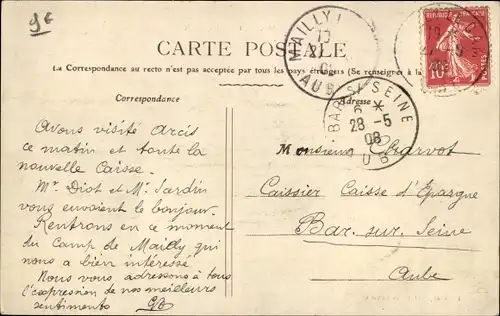 9€
MAILLY
AUB
RÉPUBLIQUE FRANÇAISE
10
POSTES
CARTE POSTALE
La Correspondance au recto n'est pas acceptée par tous les pays étrangers (Se renseigner à la
Correspondance
Adresse
BAR-S-SEINE
6 *
28-5
08
AUB
Avons visité Arcis
ce matin et toute la
nouvelle Caisse.
Mr. Diot et Mr. Jardin
vous envoient le bonjour.
Rentrons en ce moment
du Camp de Mailly qui
nous a bien intéressé
Nous vous adressons à tous
l'expression de nos meilleurs
sentiments
Monsieur Charvot
Caissier Caisse d'Epargne
Bar sur Seine
Aube